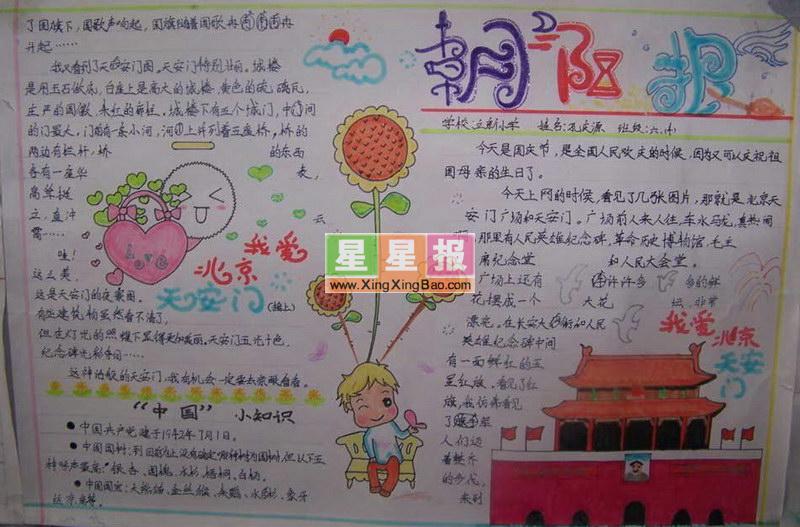 朝阳报
学校:立新小学 姓名:孔庆源 班级:六.(4)
今天是国庆节，是全国人民欢庆的时候，因为又可以庆祝祖
国母亲的生日了。
今天上网的时候，看见了几张图片，那就是北京天
安门广场和天安门。广场前人来人往，车水马龙，真热闹
那里有人民英雄纪念碑，革命历史博物馆，毛主
席纪念堂 和人民大会堂。
广场上还有 许许多多的鲜
花摆成一个 大花坛，非常
漂亮。在长安大街和人民
英雄纪念碑中间
有一面鲜红的五
星红旗，看见了红
旗，我仿佛看见
了
人们迈
着整齐
的步伐，
来到
我爱
北京
天安
门
了国旗下，国歌声响起，国旗随着国歌冉冉
升起……
我又看到了天安门图。天安门特别壮丽。城楼
是用玉石做底，白座上是高大的城楼，黄色的琉璃瓦，
庄严的国徽，朱红的廊柱。城楼下有五个城门，中间
的门最大，门前有一条小河，河上并列着五座桥，桥的
两边有栏杆，桥 的东西
各有一座华 表，
高耸挺
立，直冲 云
霄……
哇！
这么美
这是天安门的夜景图。
有些建筑物虽然看不清了，
但在灯光的照耀下显得更加美丽。天安门五光十色，
纪念碑光彩夺目…
这神话般的天安门，我有机会一定要去亲眼看看。
我爱
北京
天安门
(接上)
Love
星星报
www.XingXingBao.com
“中国”小知识
中国共产党建于1942年7月1日。
中国国树：到目前为止没有确定哪种树为国树，但以下五
种呼声最高：银杏、国槐、水杉、梧桐、白杨。
中国国宝：大熊猫、金丝猴、朱鹮、水杉、象牙